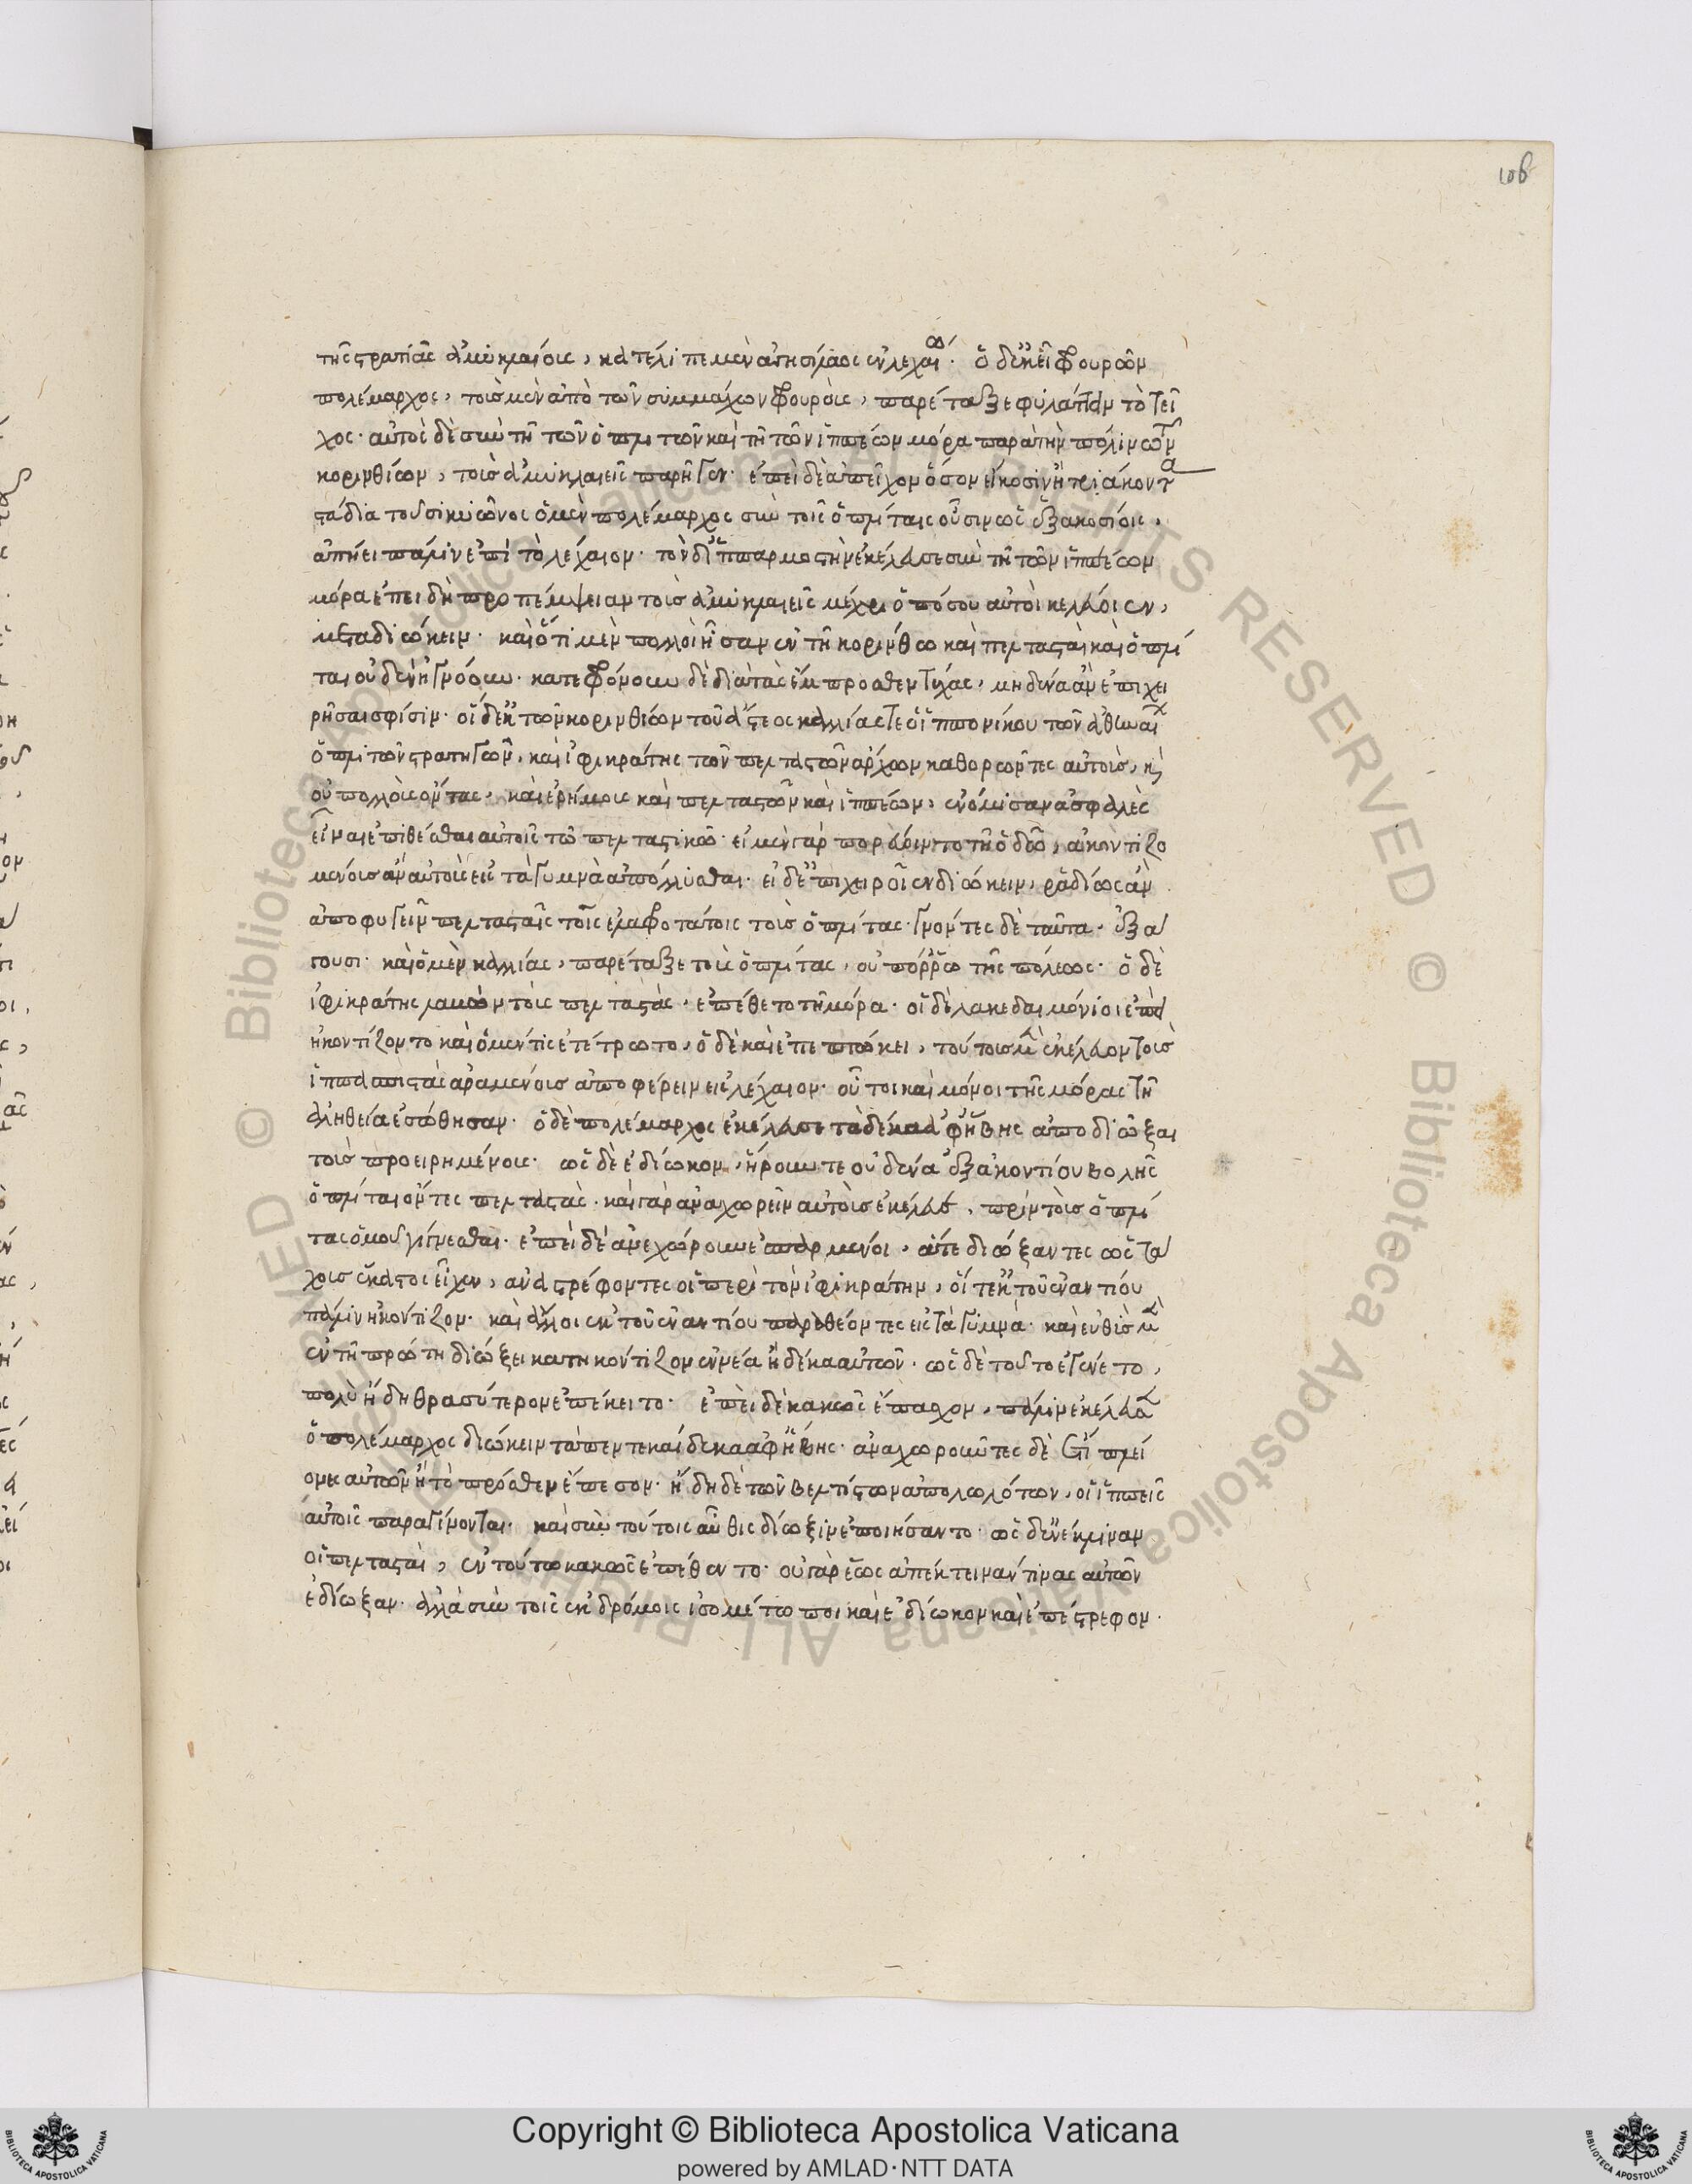 108
τῆς στρατιᾶς ἀμυκλαίους, κατέλιπε μὲν ἀγησίλαος ἐν λεχαίω. ὁ δ' ἐκεῖ φρουρῶν
πολέμαρχος, τοὺς μὲν ἀπὸ τῶν συμμάχων φρουροὺς, παρέταξε φυλάττειν τὸ τεῖ
χος· αὐτὸς δὲ σὺν τῆ τῶν ὁπλιτῶν καὶ τῆ τῶν ἱππέων μόρα παρὰ τὴν πόλιν τῶν
κορινθίων, τοὺς ἀμυκλαιεῖς παρῆγεν. ἐπεὶ δὲ ἀπεῖχον ὅσον εἴκοσιν ἢ τριάκοντα
στάδια τοῦ σικυῶνος ὁ μὲν πολέμαρχος σὺν τοῖς ὁπλίταις οὖσιν ὡς ἑξακοσίοις,
ἀπήει πάλιν ἐπὶ τὸ λέχαιον. τὸν δ' ἱππαρμοστὴν ἐκέλευσε σὺν τῆ τῶν ἱππέων
μόρα ἐπειδὴ προπέμψειαν τοὺς ἀμυκλαιεῖς μέχρι ὁπόσου αὐτοὶ κελεύοιεν,
μεταδιώκειν. καὶ ὅτι μὲν πολλοὶ ἦσαν ἐν τῆ κορίνθω καὶ πελτασταὶ καὶ ὁπλί
ται οὐδὲν ἠγνόουν. κατεφρόνουν δὲ διὰ τὰς ἔμπροσθεν τύχας, μηδένα ἂν ἐπιχει
ρῆσαι σφίσιν. οἱ δ' ἐκ τῶν κορινθίων τοῦ ἄστεος καλλίας τε ὁ ἱππονίκου τῶν ἀθηναίων
ὁπλιτῶν στρατηγῶν, καὶ ἰφικράτης τῶν πελταστῶν ἄρχων καθορῶντες αὐτοὺς, καὶ
οὐ πολλοὺς ὄντας, καὶ ἐρήμους καὶ πελταστῶν καὶ ἱππέων, ἐνόμισαν ἀσφαλὲς
εἶναι ἐπιθέσθαι αὐτοῖς τῶ πελταστικῶ. εἰ μὲν γὰρ πορεύοιντο τῆ ὁδῶ, ἀκοντιζο
μένους ἂν αὐτοὺς εἰς τὰ γυμνὰ ἀπόλλυσθαι. εἰ δ' ἐπιχειροῖεν διώκειν, ῥαδίως ἂν
ἀποφυγεῖν πελτασταῖς τοῖς ἐλαφροτάτοις τοὺς ὁπλίτας. γνόντες δὲ ταῦτα, ἐξά
γουσι. καὶ ὁ μὲν καλλίας, παρέταξε τοὺς ὁπλίτας, οὐ πόρρω τῆς πόλεως. ὁ δὲ
ἰφικράτης λαβὼν τοὺς πελταστὰς, ἐπέθετο τῆ μόρα. οἱ δὲ λακεδαιμόνιοι ἐπεὶ
ἠκοντίζοντο καὶ ὁ μέν τις ἐτέτρωτο, ὁ δὲ καὶ ἐπεπτώκει, τούτους μὲν ἐκέλευον τοὺς
ὑπασπιστὰς ἀραμένους ἀποφέρειν εἰς λέχαιον. οὗτοι καὶ μόνοι τῆς μόρας τῆ
ἀληθεία ἐσώθησαν. ὁ δὲ πολέμαρχος ἐκέλευσε τὰ δέκα ἀφ' ἥβης ἀποδιῶξαι
τοὺς προειρημένους. ὡς δὲ ἐδίωκον, ᾕρουν τε οὐδένα ἐξ ἀκοντίου βολῆς
ὁπλῖται ὄντες πελταστάς. καὶ γὰρ ἀναχωρεῖν αὐτοὺς ἐκέλευε, πρὶν τοὺς ὁπλί
τας ὁμοῦ γίγνεσθαι. ἐπεὶ δὲ ἀνεχώρουν ἐσπαρμένοι, ἅτε διώξαντες ὡς τά
χους ἕκαστος εἶχεν, ἀναστρέφοντες οἱ περὶ τὸν ἰφικράτην, οἵ τε ἐκ τοῦ ἐναντίου
πάλιν ἠκόντιζον. καὶ ἄλλοι ἐκ τοῦ ἐναντίου παραθέοντες εἰς τὰ γυμνά. καὶ εὐθὺς μὲν
ἐν τῆ πρώτη διώξει κατηκόντιζον ἐννέα ἢ δέκα αὐτῶν. ὡς δὲ τοῦτο ἐγένετο,
πολὺ ἤδη θρασύτερον ἐπέκειτο. ἐπεὶ δὲ κακῶς ἔπασχον, πάλιν ἐκέλευσεν
ὁ πολέμαρχος διώκειν τὰ πεντεκαίδεκα ἀφ' ἥβης. ἀναχωροῦντες δὲ ἔτι πλεί
ονες αὐτῶν ἢ τὸ πρόσθεν ἔπεσον. ἤδη δὲ τῶν βελτίστων ἀπολωλότων, οἱ ἱππεῖς
αὐτοῖς παραγίνονται. καὶ σὺν τούτοις αὖθις δίωξιν ἐποιήσαντο. ὡς δ' ἐνέκλιναν
οἱ πελτασταὶ, ἐν τούτω κακῶς ἐπέθεντο. οὐ γὰρ ἕως ἀπέκτεινάν τινας αὐτῶν
ἐδίωξαν. ἀλλὰ σὺν τοῖς ἐκδρόμοις ἰσομέτωποι καὶ ἐδίωκον καὶ ἐπέστρεφον.
© Biblioteca Apostolica Vaticana ALL RIGHTS RESERVED
Copyright © Biblioteca Apostolica Vaticana
powered by AMLAD·NTT DATA